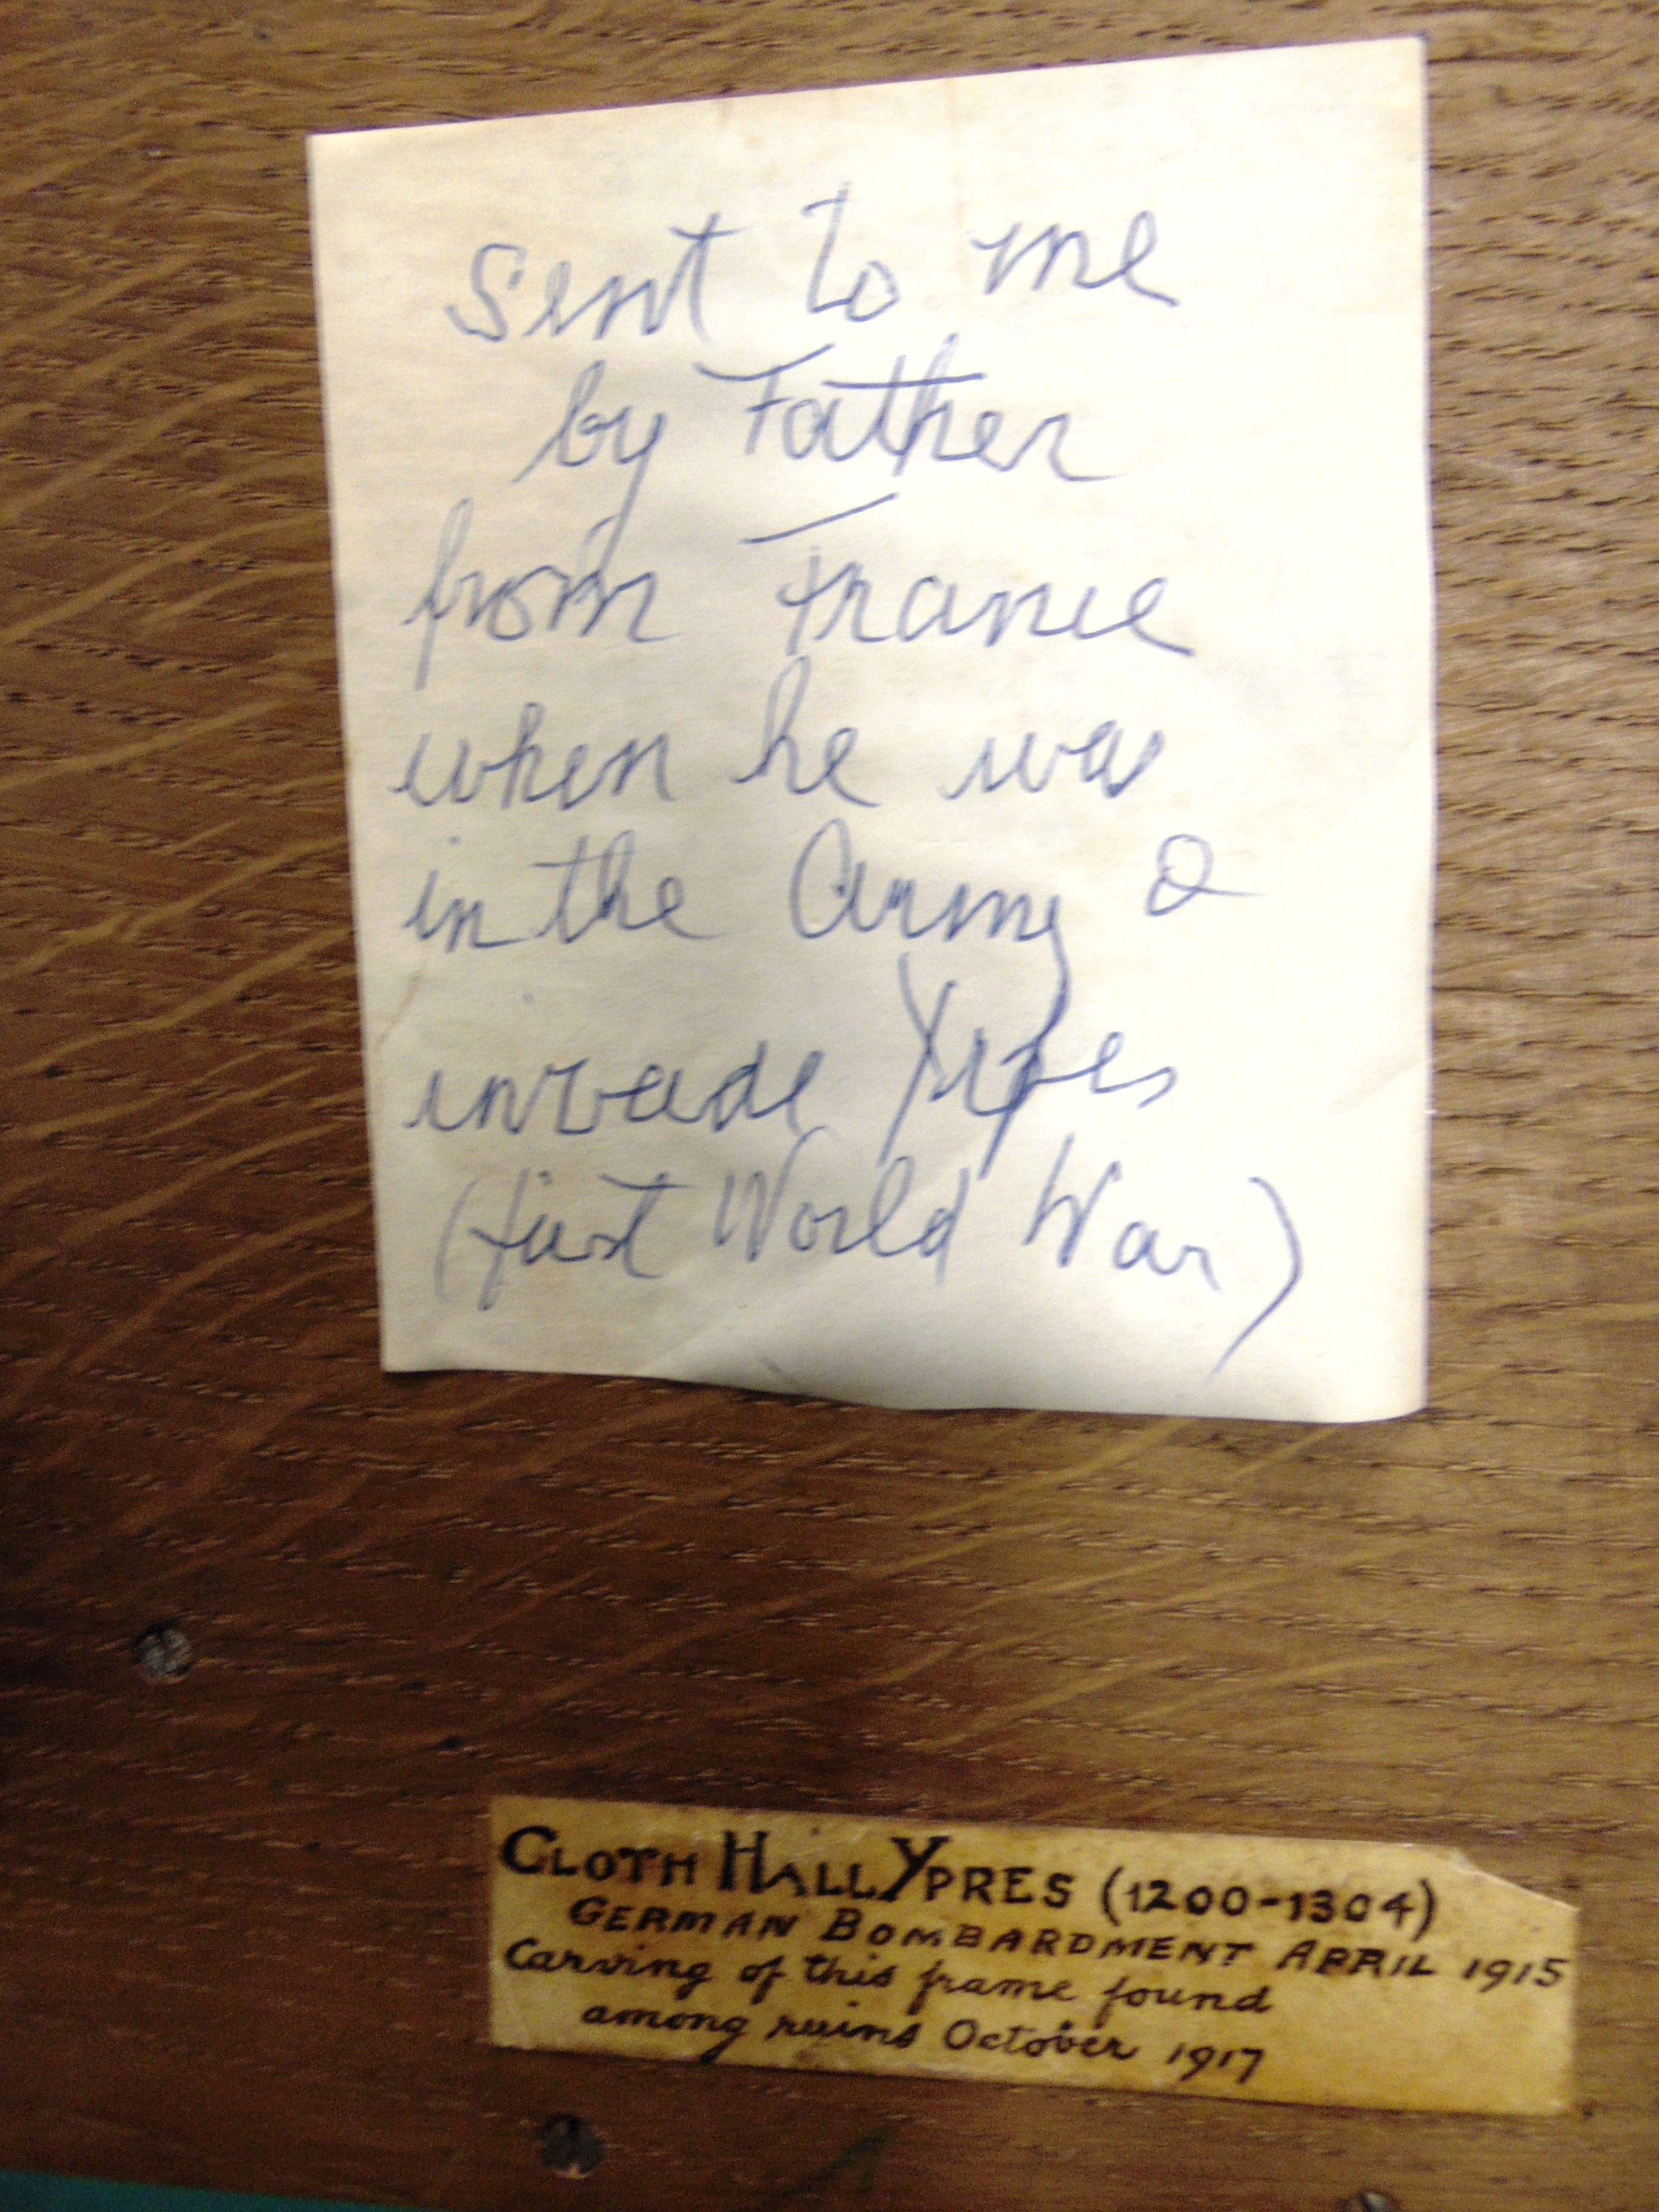 Sent to me
by Father
from France
when he was
in the Army &
invade Ypres
(first World War)
CLOTH HALL YPRES (1200-1304)
GERMAN BOMBARDMENT APRIL 1915
Carving of this frame found
among ruins October 1917